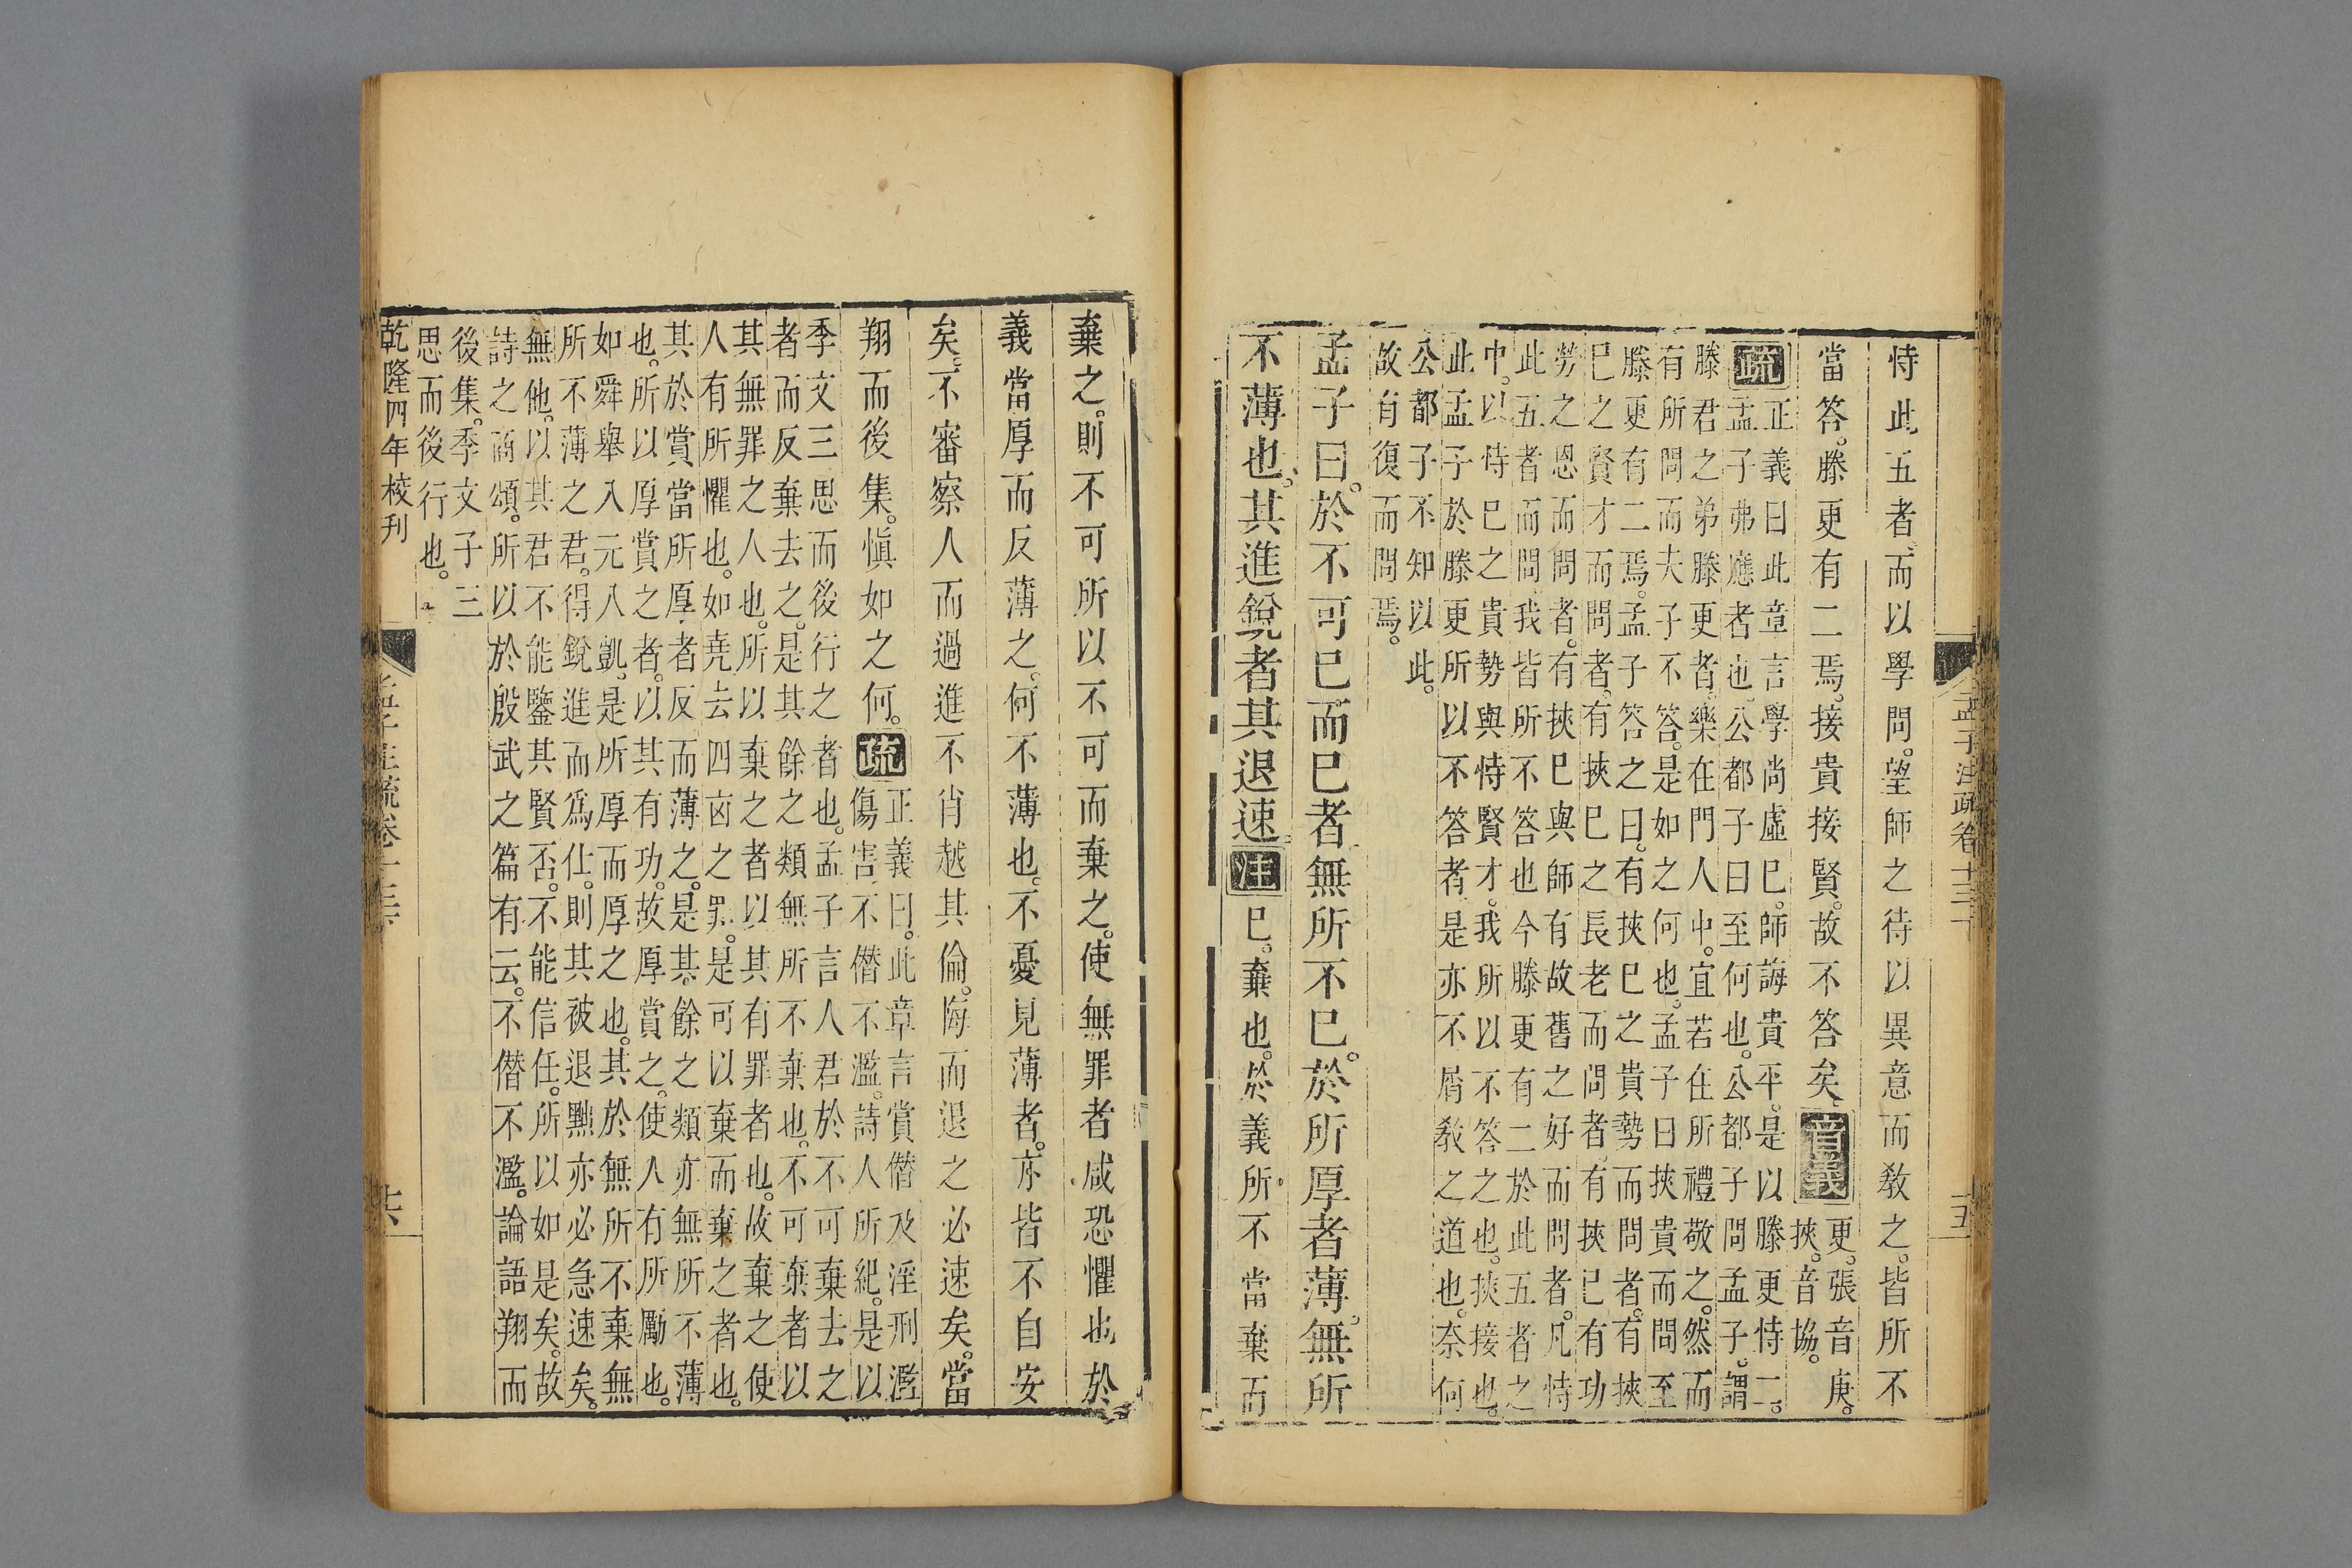 孟子注疏卷十三下
五
恃此五者而以學問。望師之待以異意而敎之。皆所不
當答。滕更有二焉。接貴接賢。故不答矣。音義更。張音庚。
挾。音協。
疏正義曰此章言學尚虛巳。師誨貴平。是以滕更恃二。
孟子弗應者也公都子曰至何也。公都子問孟子。謂
滕君之弟滕更者。樂在門人中。宜若在所禮敬之。然而
有所問而夫子不答。是如之何也。孟子曰挾貴而問至
滕更有二焉。孟子答之曰。有挾巳之貴勢而問者。有挾
巳之賢才而問者。有挾巳之長老而問者。有挾巳有功
勞之恩而問者。有挾巳與師有故舊之好而問者。凡恃
此五者而問。我皆所不答也今滕更有二於此五者之
中。以恃巳之貴勢與恃賢才。我所以不答之也。挾接也。
此孟子於滕更所以不答者。是亦不屑敎之道也。奈何
公都子不知以此。
故有復而問焉。
孟子曰。於不可巳而巳者無所不巳。於所厚者薄。無所
不薄也。其進銳者其退速注巳。棄也。於義所不當棄而
棄之。則不可所以不可而棄之。使無罪者咸恐懼也於
義當厚而反薄之。何不薄也。不憂見薄者。亦皆不自安
矣。不審察人而過進不肖越其倫。悔而退之必速矣。當
翔而後集。愼如之何。疏正義曰。此章言賞僭及淫刑濫
傷害不僭不濫。詩人所紀。是以
季文三思而後行之者也。孟子言人君於不可棄去之
者而反棄去之。是其餘之類無所不棄也。不可棄者以
其無罪之人也。所以棄之者以其有罪者也。故棄之使
人有所懼也。如堯去四凶之罪。是可以棄而棄之者也。
其於賞當所厚者反而薄之。是其餘之類亦無所不薄
也。所以厚賞之者。以其有功。故厚賞之。使人有所勵也。
如舜舉八元八凱。是所厚而厚之也。其於無所不棄無
所不薄之君。得銳進而爲仕。則其被退黜亦必急速矣。
無他。以其君不能鑒其賢否。不能信任。所以如是矣。故
詩之商頌。所以於殷武之篇有云。不僭不濫。論語翔而
後集。季文子三
思而後行也。
乾隆四年校刊
孟子注疏卷十三下
六